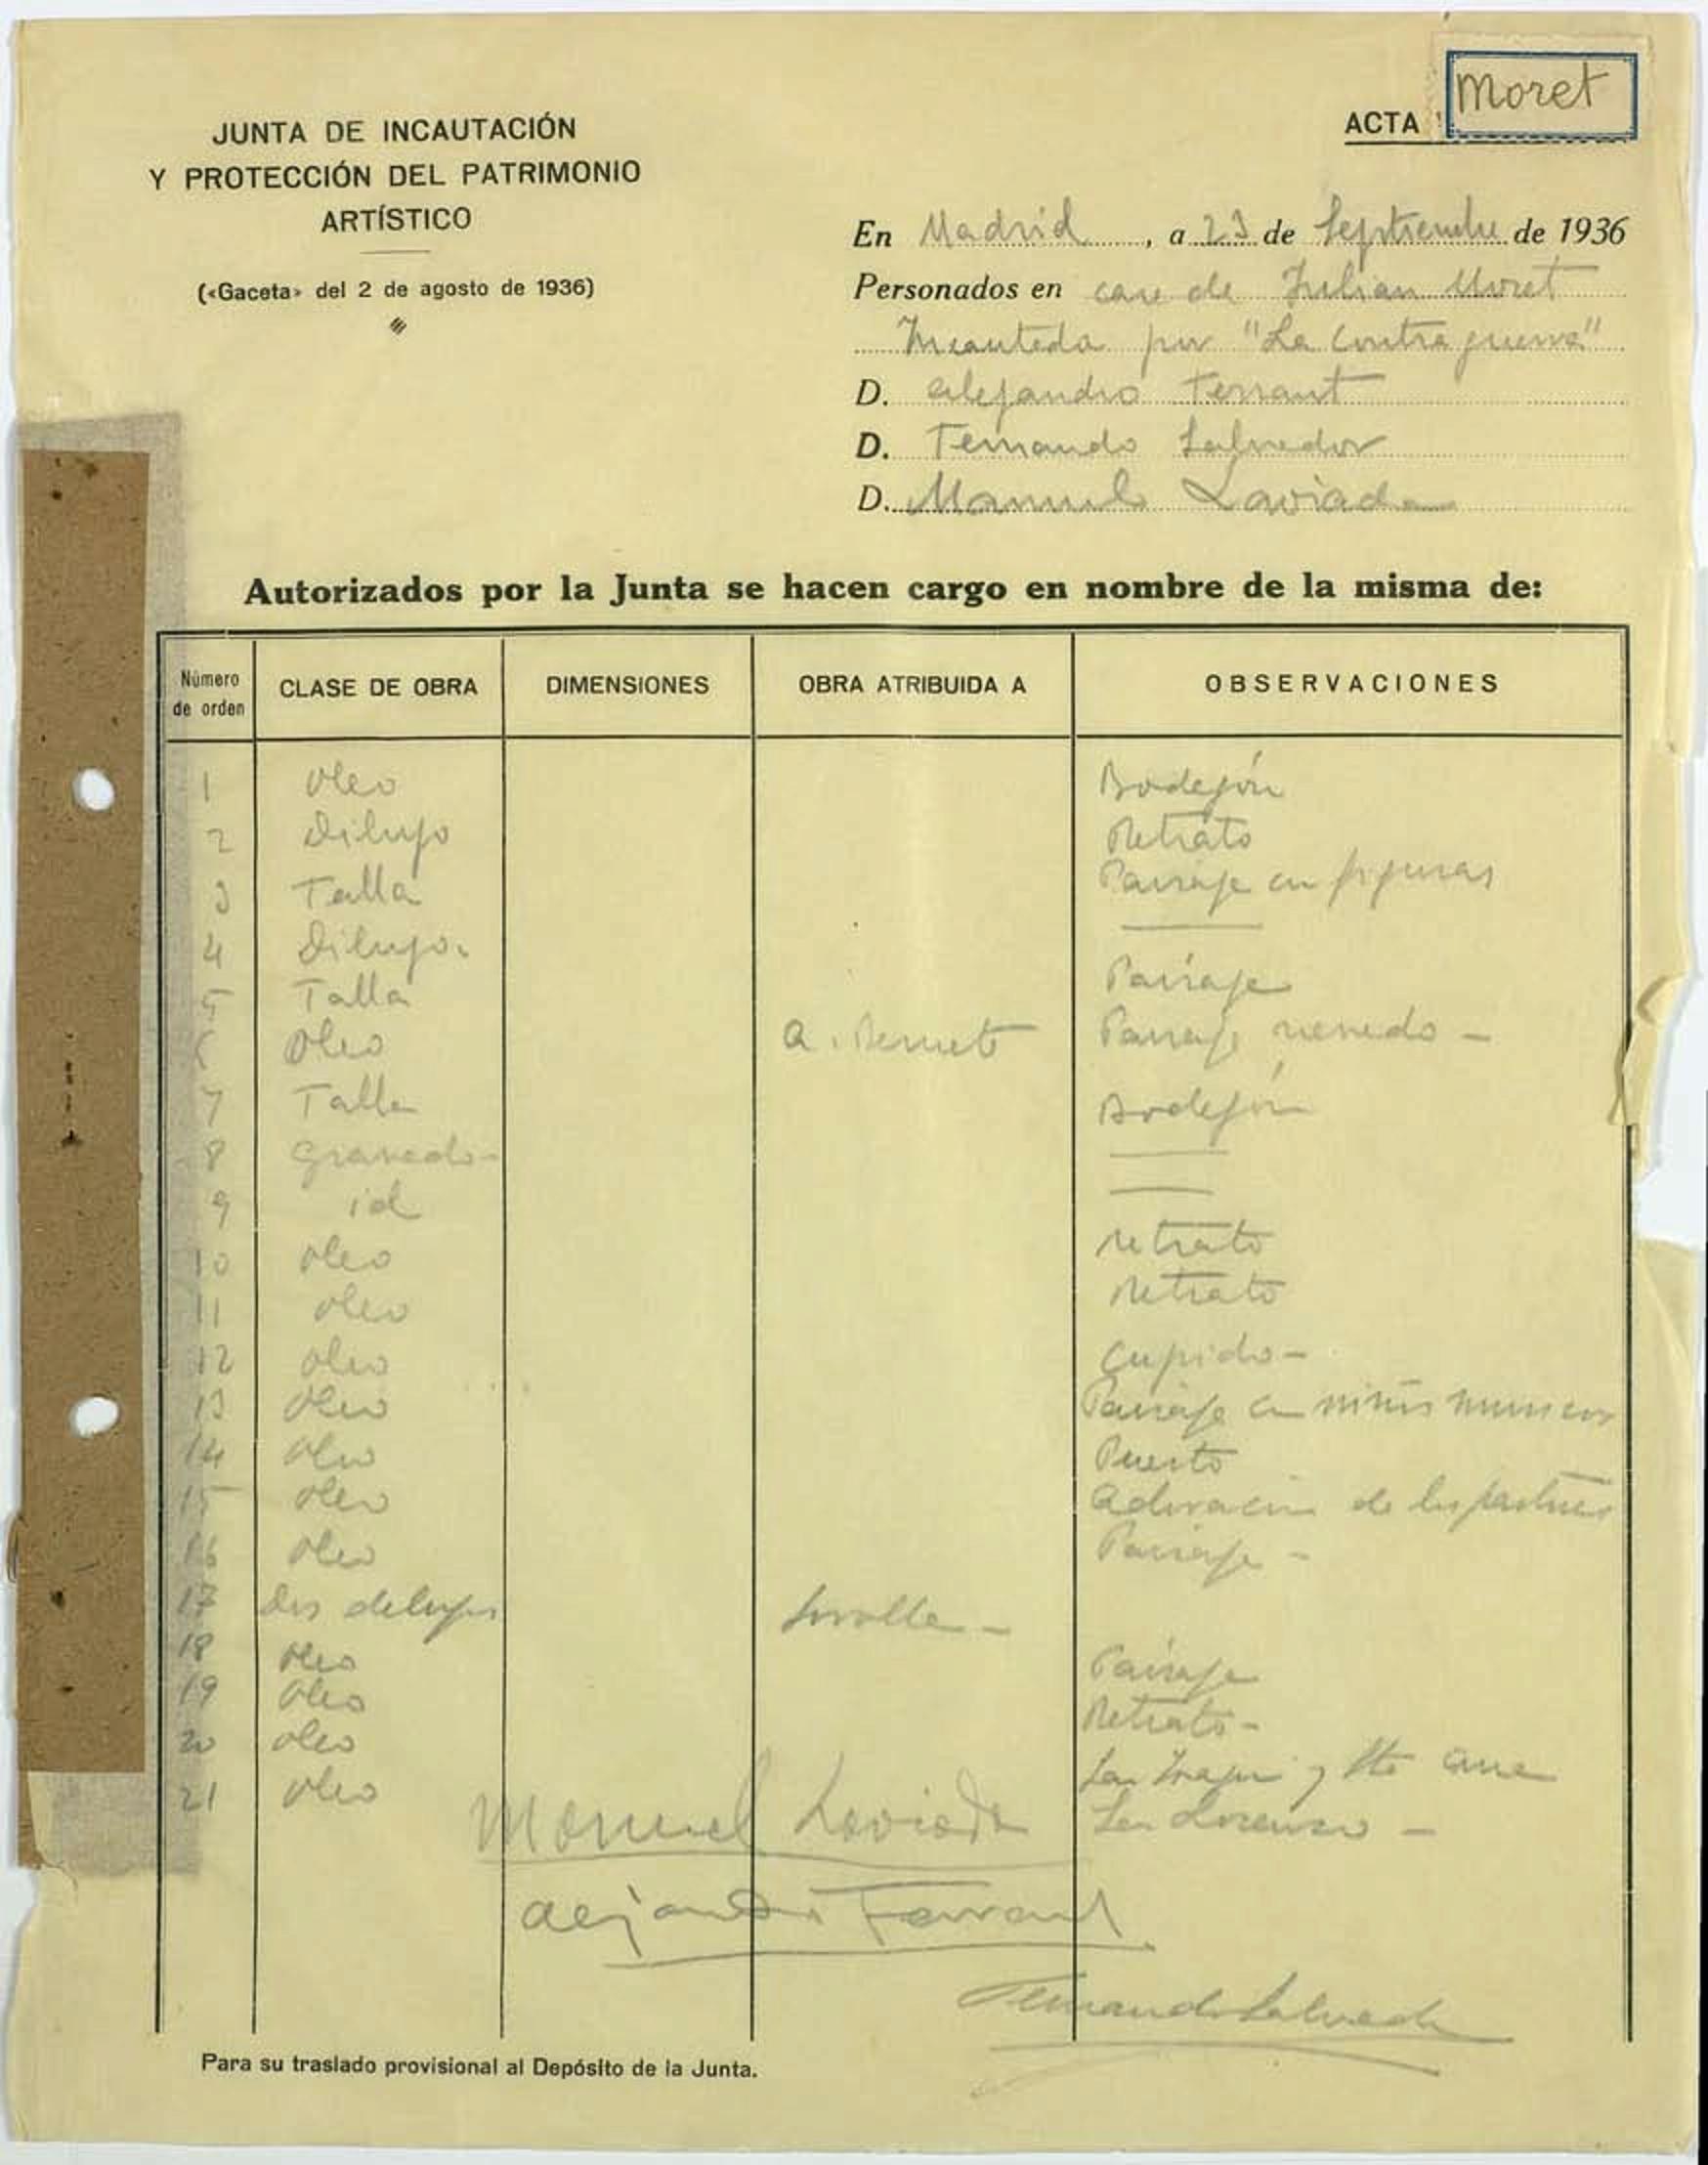 Moret
ACTA
JUNTA DE INCAUTACIÓN
Y PROTECCIÓN DEL PATRIMONIO
ARTÍSTICO
(«Gaceta» del 2 de agosto de 1936)
En Madrid, a 23 de Septiembre de 1936
Personados en casa de Julian Moret
Incautada por "La Contraguerra"
D. Alejandro Ferrant
D. Fernando Salvador
D. Manuel Laviada
Autorizados por la Junta se hacen cargo en nombre de la misma de:
Número de orden CLASE DE OBRA DIMENSIONES OBRA ATRIBUIDA A OBSERVACIONES
1 Oleo Bodegón
2 Dibujo Retrato
3 Talla Paisaje con figuras
4 Dibujo.
5 Talla Paisaje
6 Oleo A. Beruete Paisaje nevado -
7 Talla Bodegón
8 Grabado -
9 id
10 oleo retrato
11 oleo Retrato
12 oleo Cupido -
13 Oleo Paisaje con niños
14 oleo Puerto
15 oleo Adoracion de los pastores
16 oleo Paisaje -
17 Dos dibujos Sorolla -
18 oleo Paisaje
19 Oleo Retrato -
20 oleo San Joaquin y Sta Ana
21 oleo San Lorenzo -
Manuel Laviada
Alejandro Ferrant
Fernando Salvador
Para su traslado provisional al Depósito de la Junta.